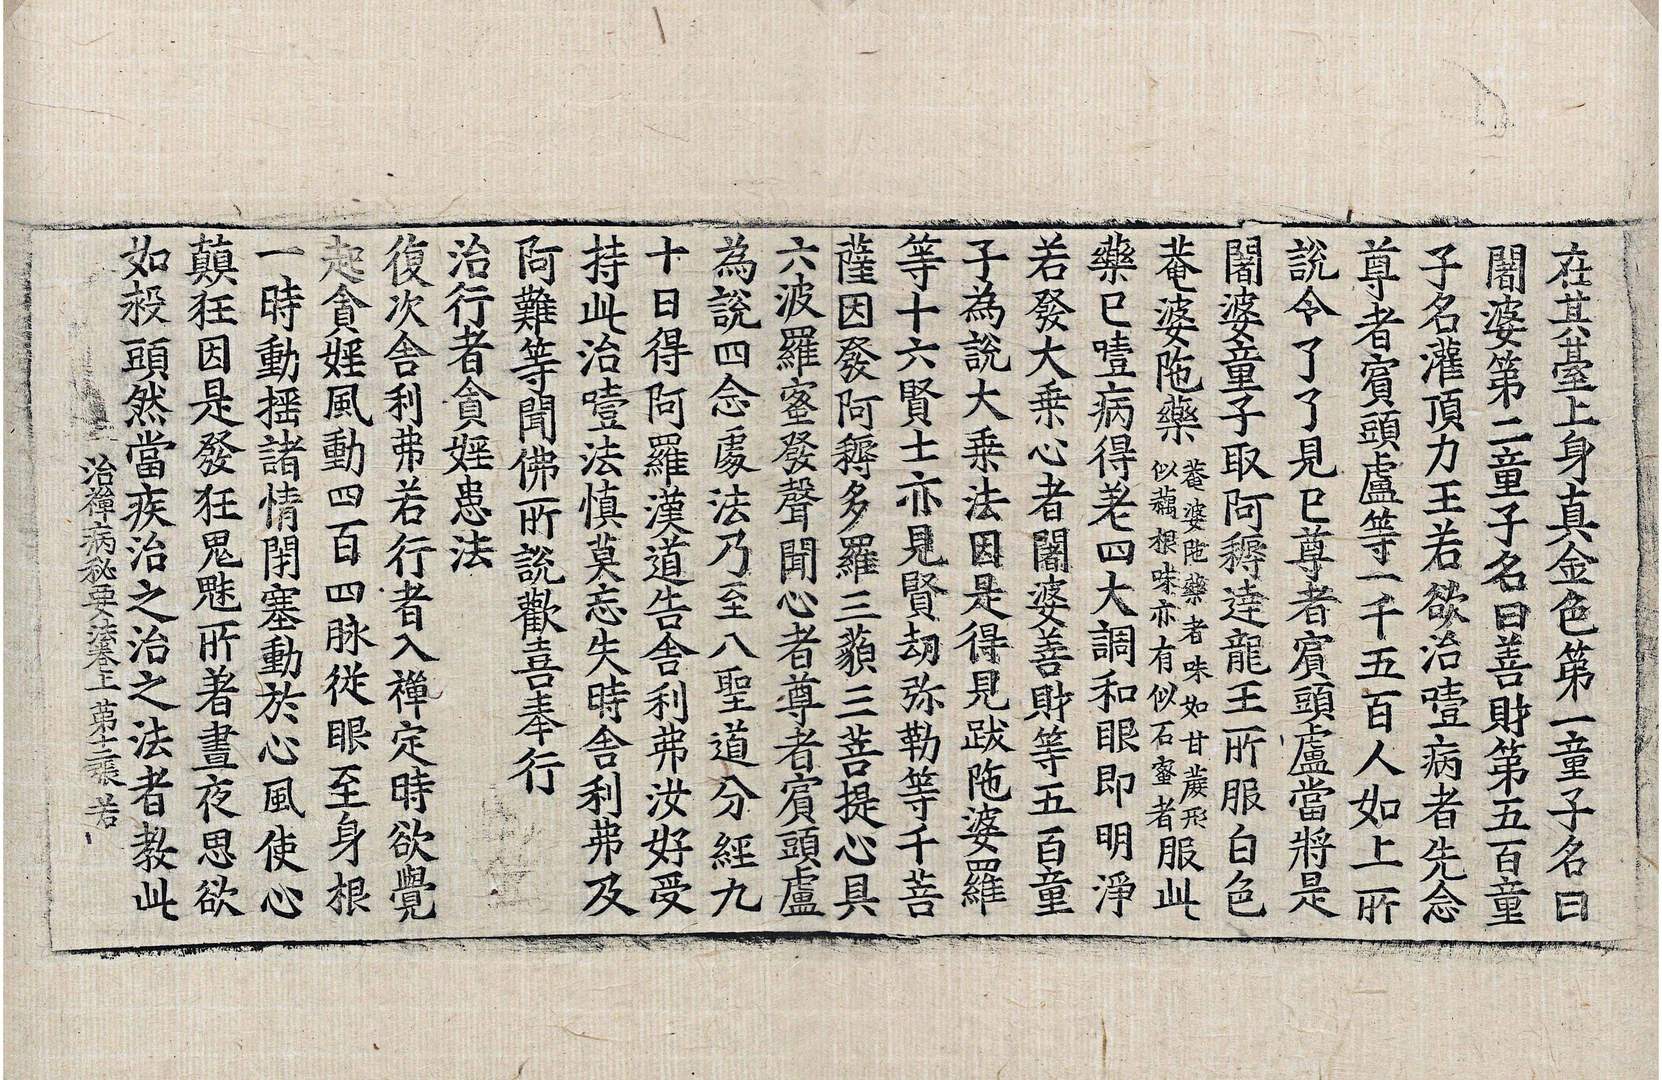 在其臺上身真金色第一童子名曰
闍婆第二童子名曰善財第五百童
子名灌頂力王若欲治噎病者先念
尊者賔頭盧等一千五百人如上所
說令了了見已尊者賔頭盧當將是
闍婆童子取阿耨達龍王所服白色
菴婆陁藥菴婆陁藥者味如甘蔗形似藕根味亦有似石蜜者服此
藥已噎病得差四大調和眼即明淨
若發大乗心者闍婆善財等五百童
子為說大乗法因是得見跋陁婆羅
等十六賢士亦見賢劫弥勒等千菩
薩因發阿耨多羅三藐三菩提心具
六波羅蜜發聲聞心者尊者賔頭盧
為說四念處法乃至八聖道分經九
十日得阿羅漢道告舍利弗汝好受
持此治噎法慎莫忘失時舍利弗及
阿難等聞佛所說歡喜奉行
治行者貪婬患法
復次舍利弗若行者入禪定時欲覺
起貪婬風動四百四脉從眼至身根
一時動揺諸情閉塞動於心風使心
顛狂因是發狂鬼魅所著晝夜思欲
如救頭然當疾治之治之法者教此
治禪病秘要法卷上 第十二張 若